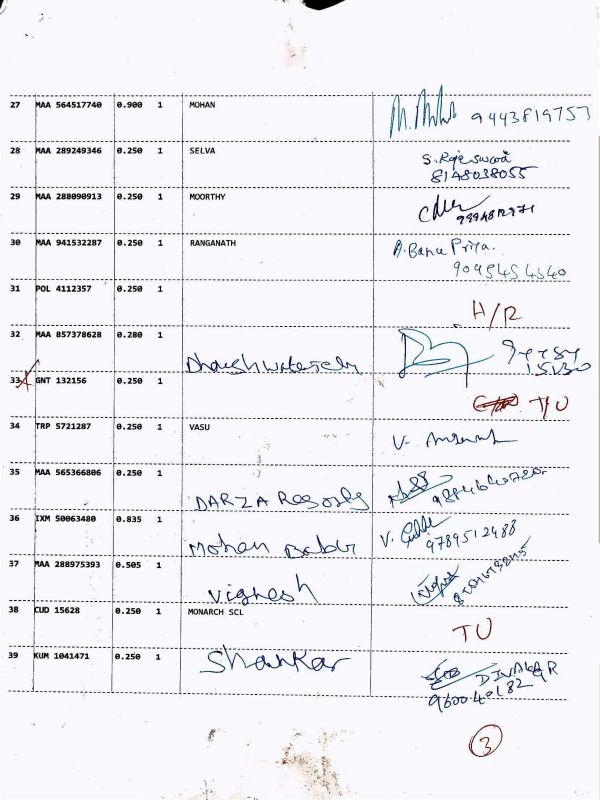 27 MAA 564517740 0.900 1 MOHAN 9443819757
28 MAA 289249346 0.250 1 SELVA S. Rajeswari
8148038055
29 MAA 288090913 0.250 1 MOORTHY
9994812971
30 MAA 941532287 0.250 1 RANGANATH A. Banu Priya.
9095454540
31 POL 4112357 0.250 1
H/R
32 MAA 857378628 0.280 1
33 GNT 132156 0.250 1
T/U
34 TRP 5721287 0.250 1 VASU
V.
35 MAA 565366806 0.250 1
DARZA
36 IXM 50063480 0.835 1
Mohan Babu V.
9789512488
37 MAA 288975393 0.505 1
Vignesh
38 CUD 15628 0.250 1 MONARCH SCL
TU
39 KUM 1041471 0.250 1 Shankar
DIVAKAR
960040182
3